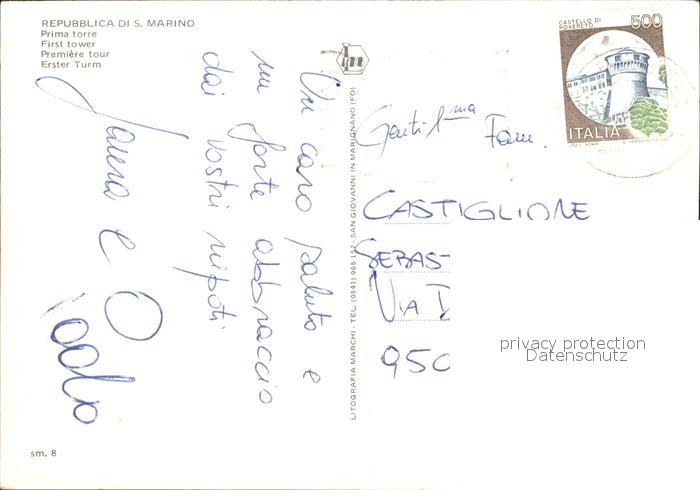 REPUBBLICA DI S. MARINO
Prima torre
First tower
Première tour
Erster Turm
Un caro saluto e
un forte abbraccio
dai vostri nipoti
e Paolo
LITOGRAFIA MARCHI - TEL. (0541) 965 157 - SAN GIOVANNI IN MARIGNANO (FO)
CASTELLO DI
ROVERETO
500
ITALIA
Gentil.ma Fam.
CASTIGLIONE
SEBAS
VIA
950
privacy protection
Datenschutz
sm. 8